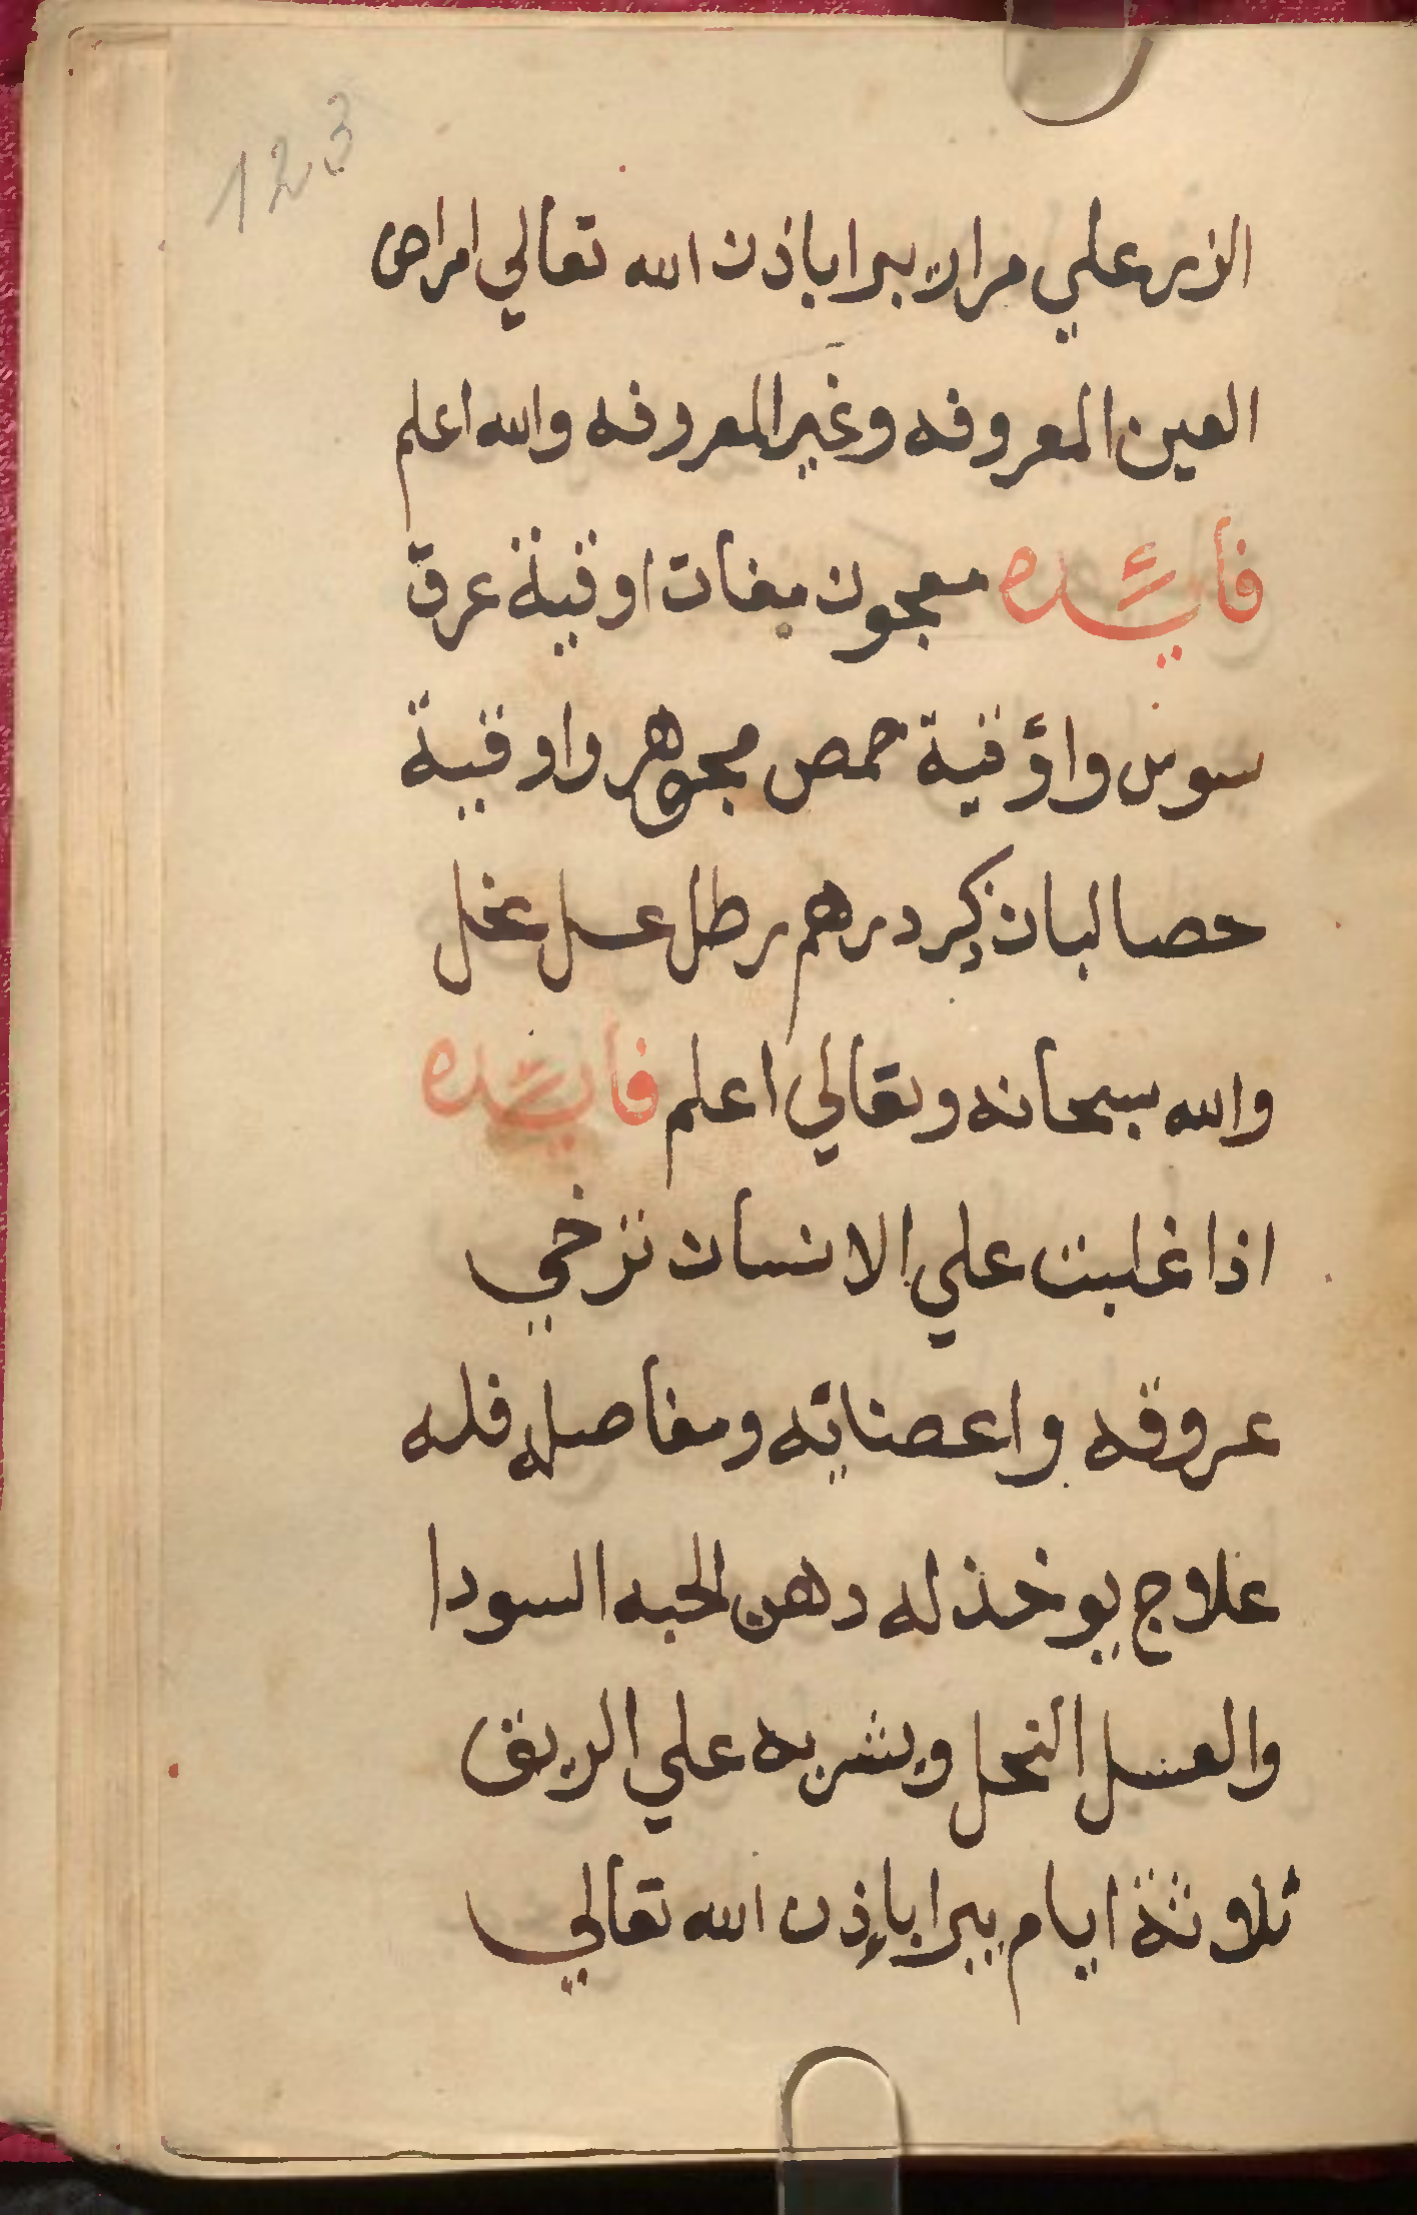 123
علي مرار يبرا باذن الله تعالي امراض
العين المعروفه وغير المعروفه والله اعلم
فائده معجون مغات اوقية عرق
سوس واوٴقية حمص مجوهر واوقية
حصا لبان ذكر درهم رطل عسل نحل
والله سبحانه وتعالي اعلم فائده
اذا غلبت علي الانسان نزخي
عروقه واعضايه ومفاصله فله
علاج يوخذ له دهن الحبه السودا
والعسل النحل ويشربه علي الريق
ثلاوثة ايام يبرا بإذن الله تعالي